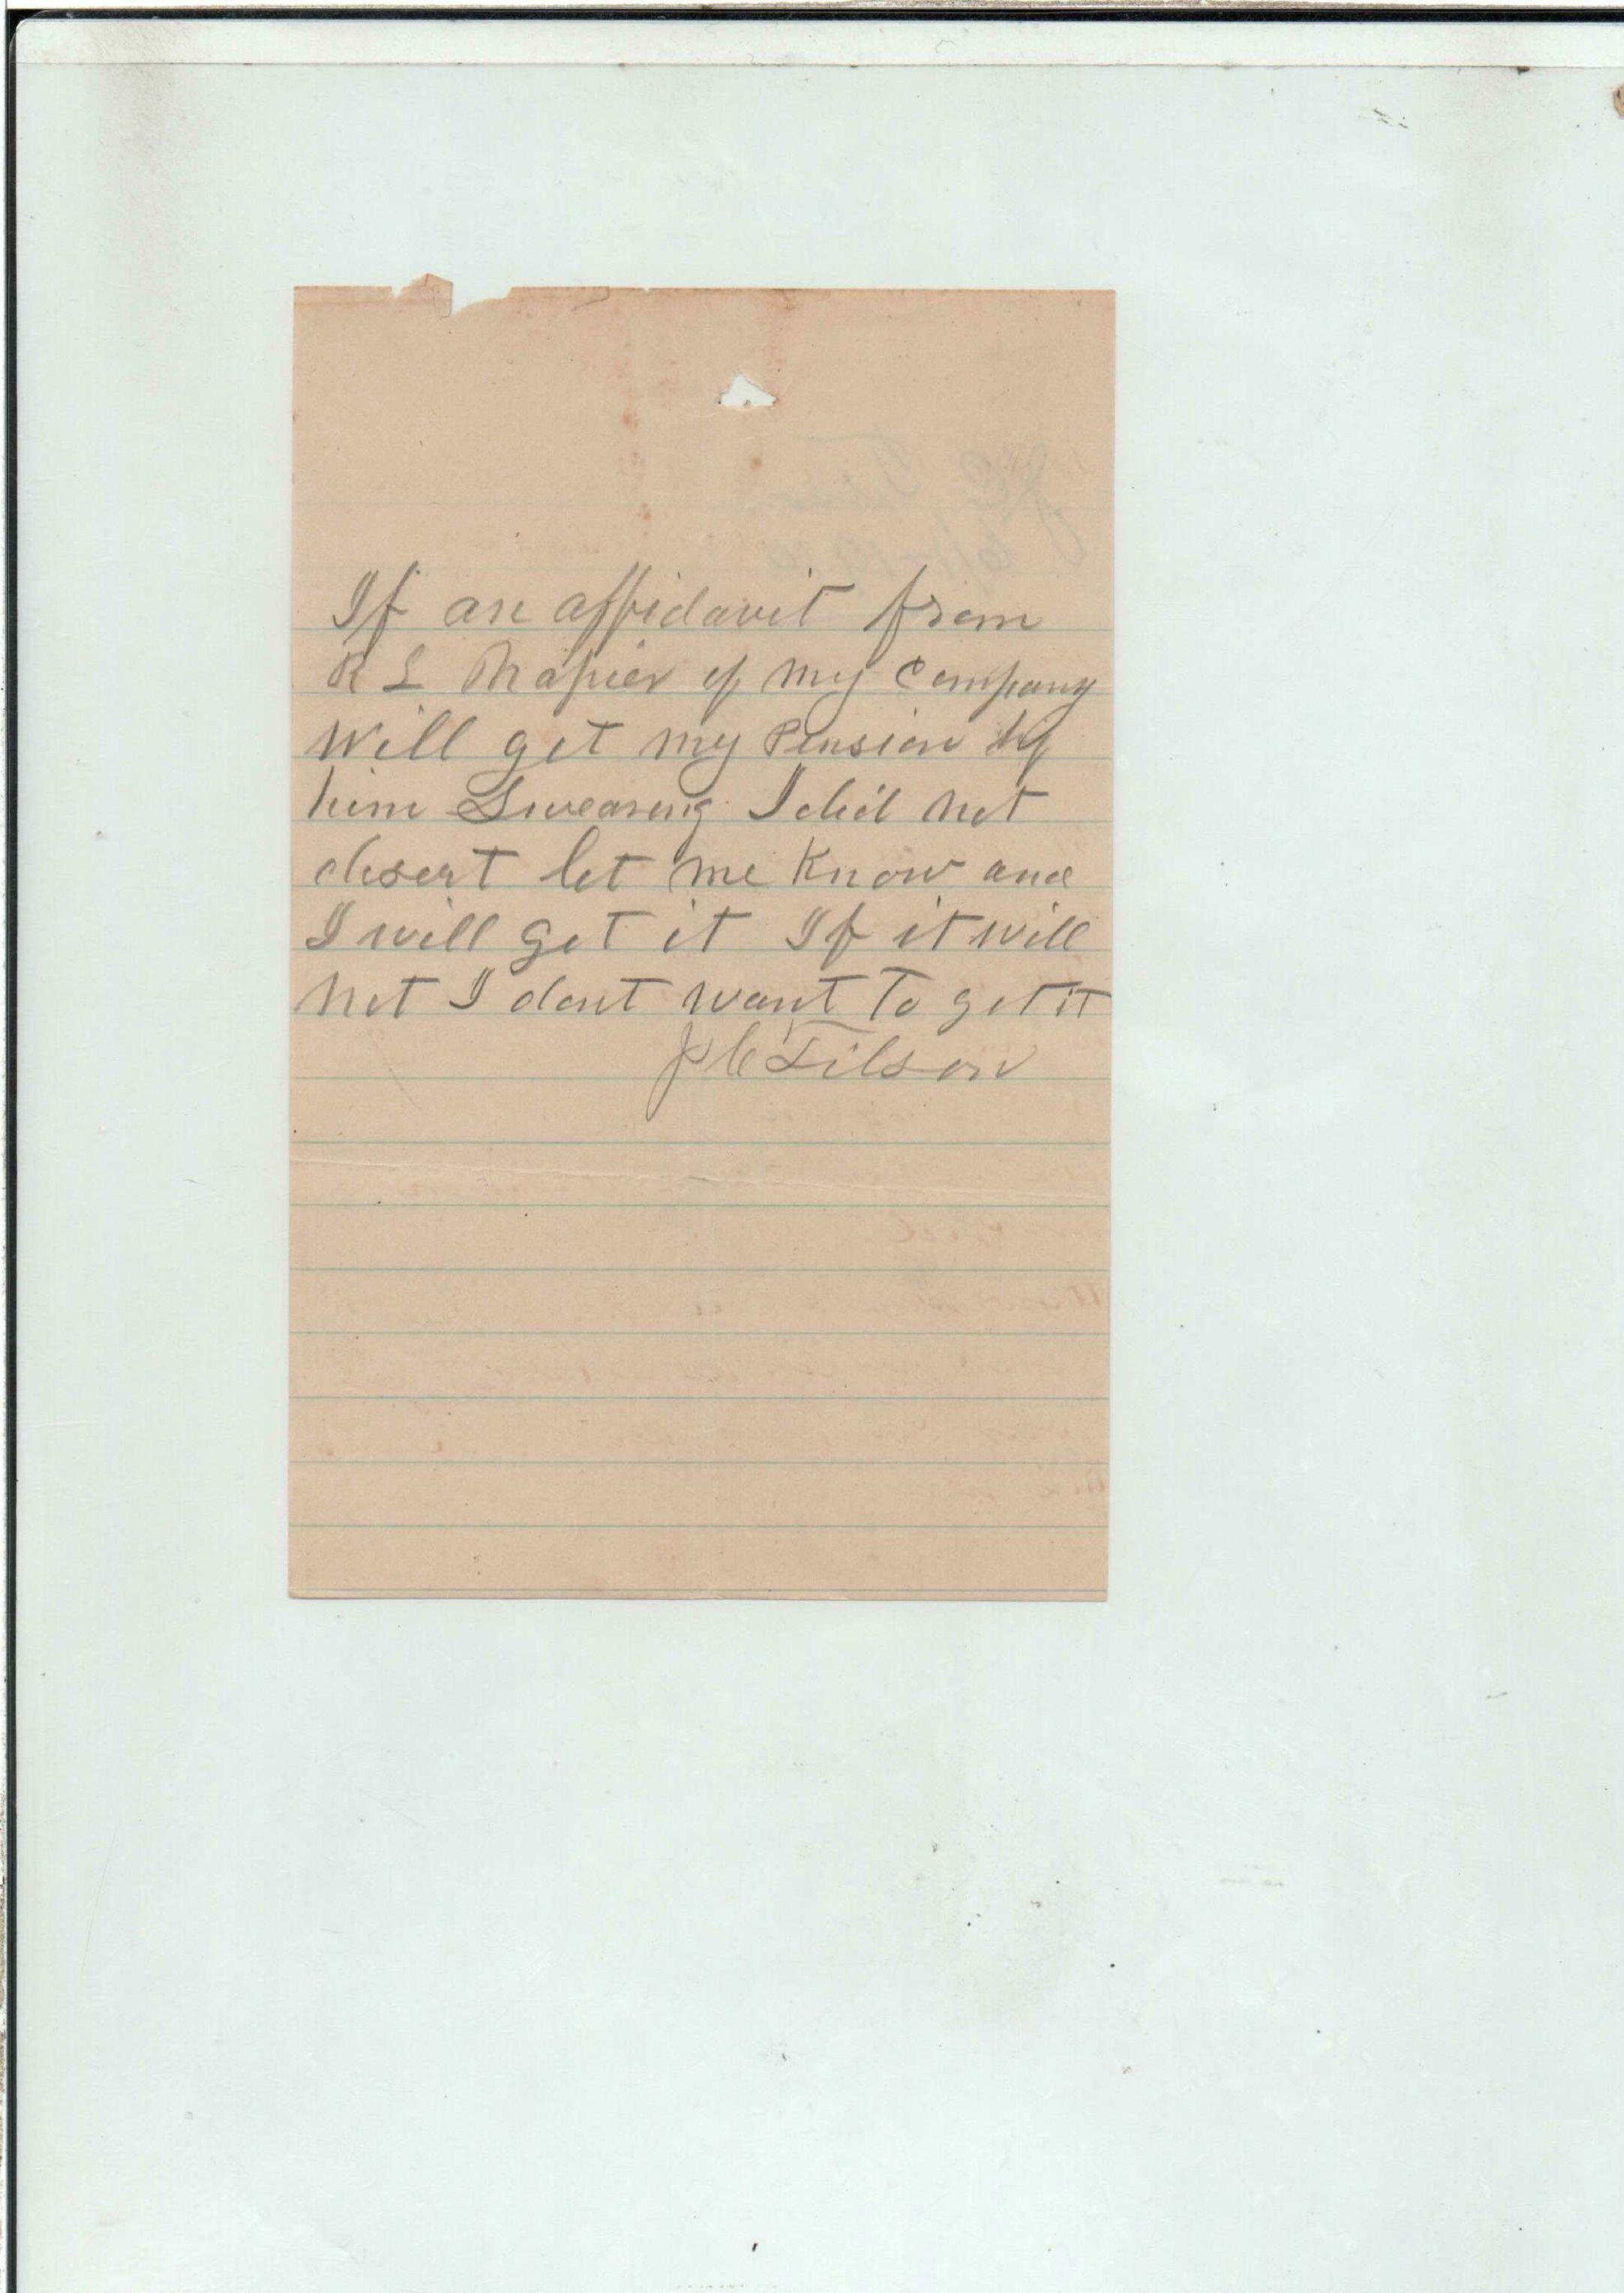 If an affidavit from
R L Napier of my Company
will get my Pension by
him Swearing I did not
desert let me Know and
I will get it If it will
not I dont want To get it
J C Tilson